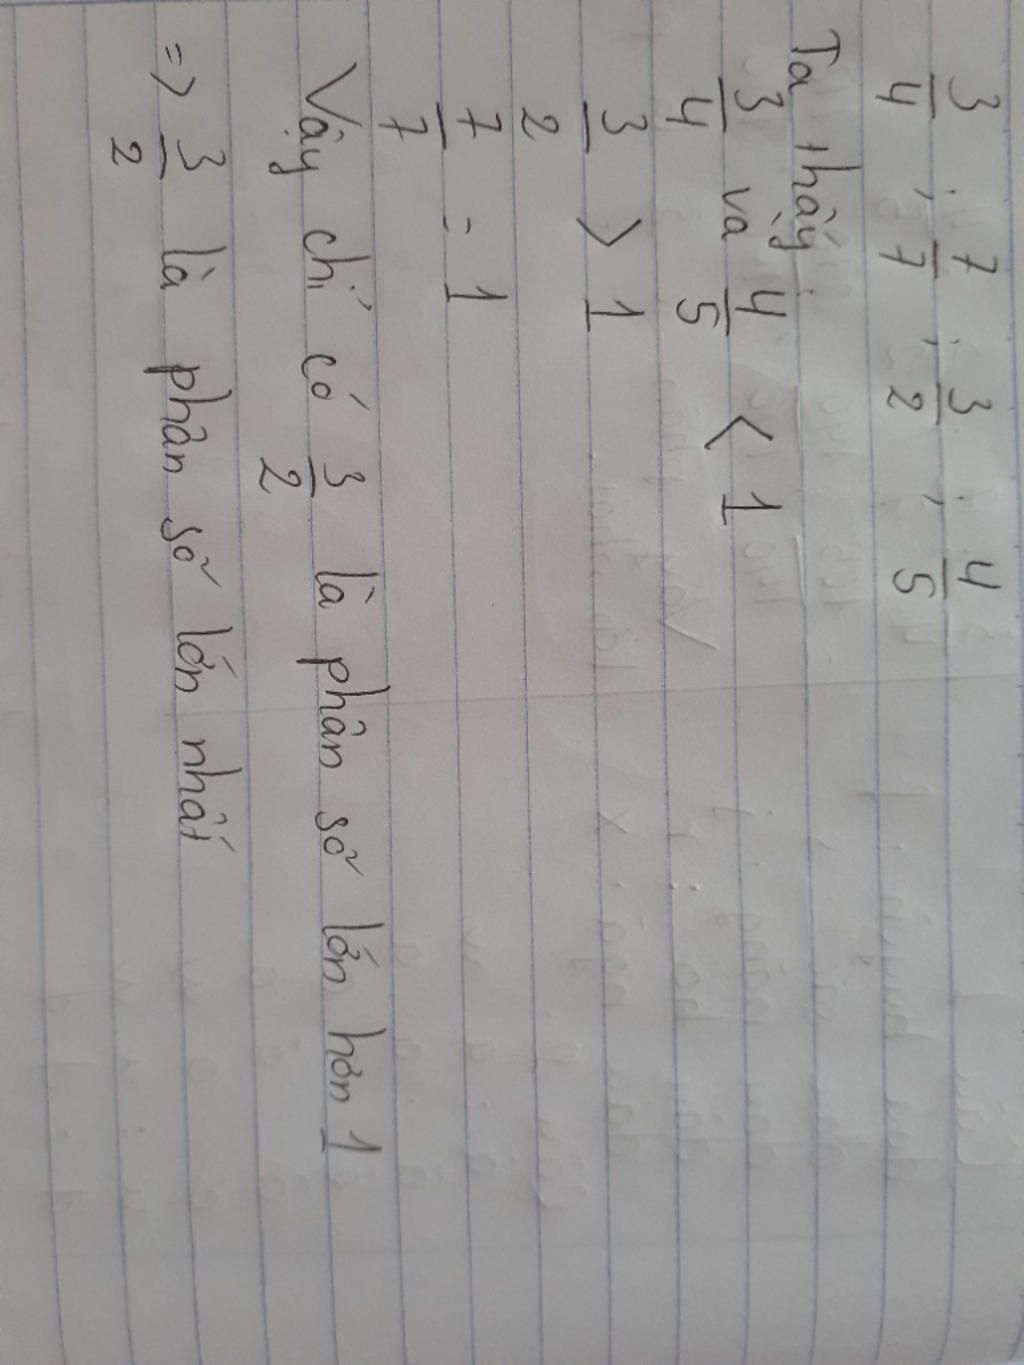 3/4 ; 7/7 ; 3/2 ; 4/5
Ta thấy:
3/4 và 4/5 < 1
3/2 > 1
7/7 = 1
Vậy chỉ có 3/2 là phân số lớn hơn 1
=> 3/2 là phân số lớn nhất